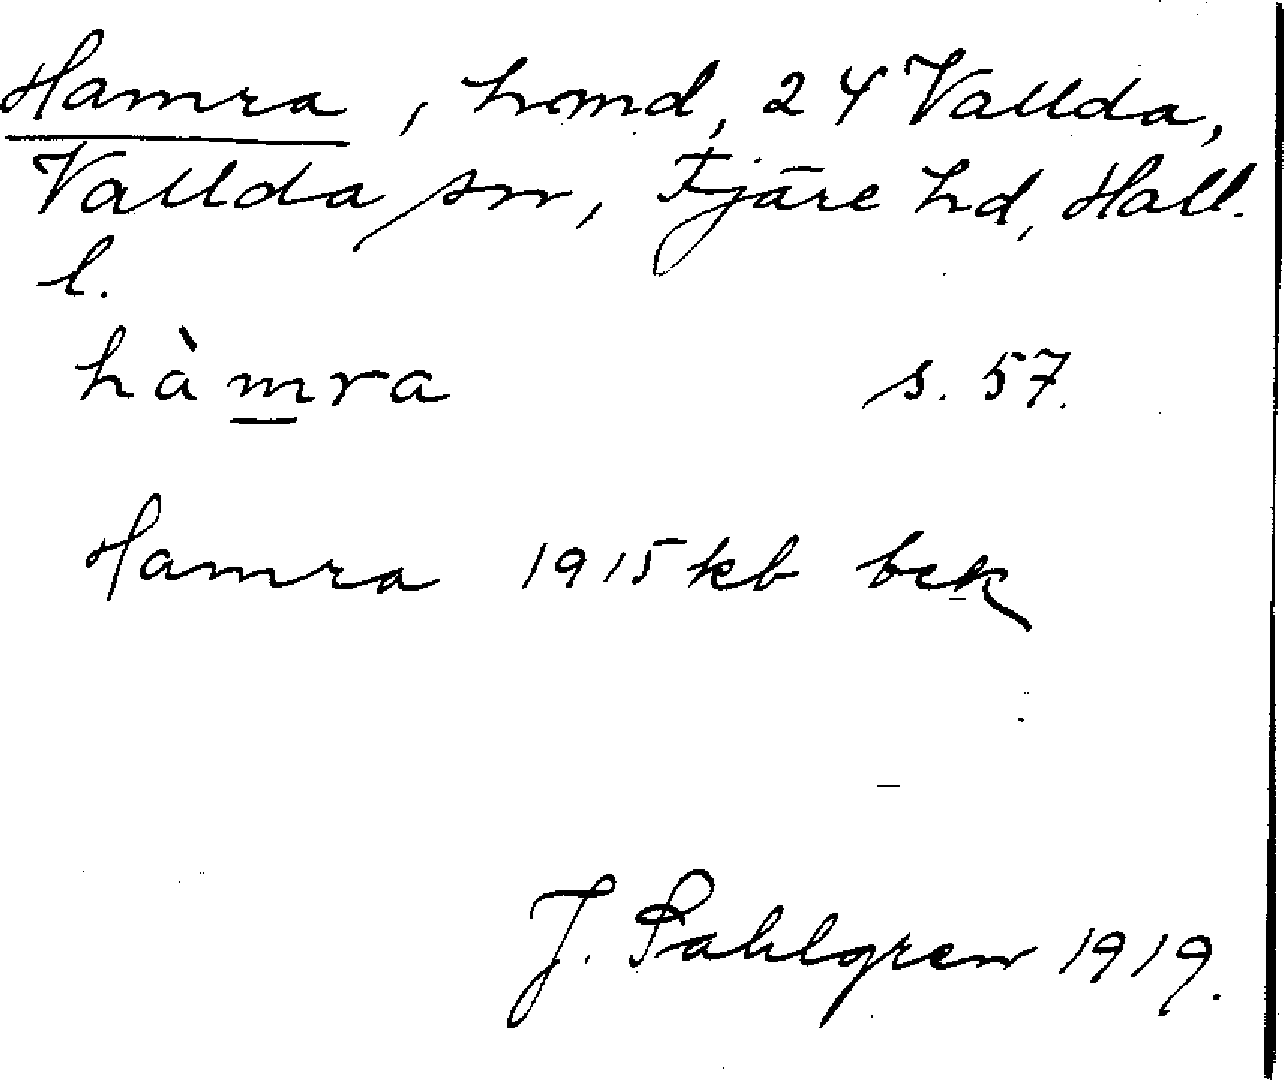 Hamra, hmd, 24 Vallda,
Vallda sn, Fjäre hd, Hall.
l.
hàmra s. 57.
Hamra 1915 kb bek
J. Sahlgren 1919.